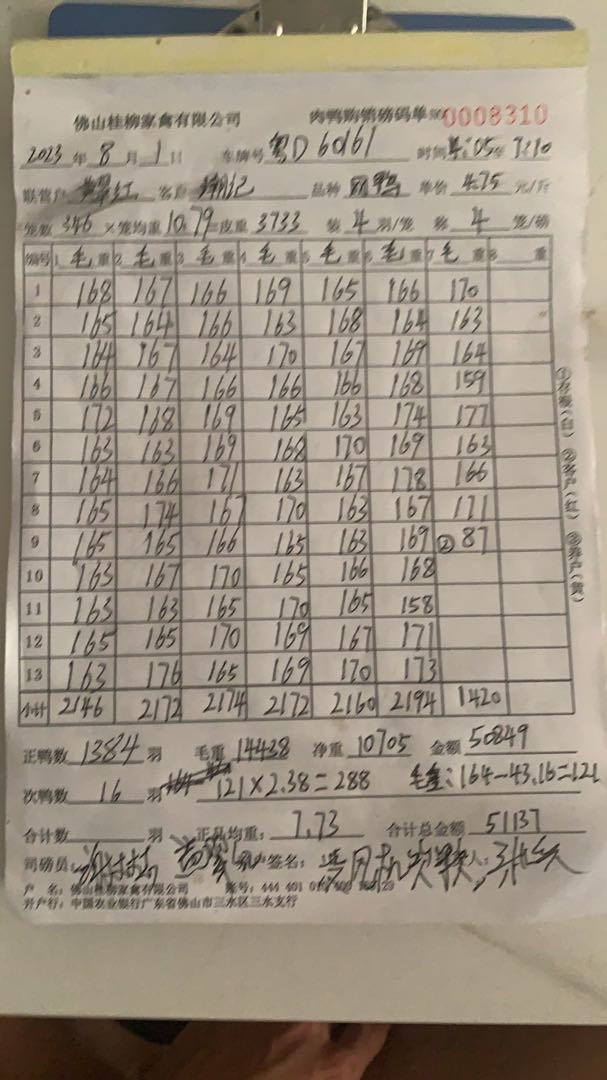 佛山桂柳家禽有限公司 肉鸭购销磅码单 NO 0008310
2023 年 8 月 1 日 车牌号 粤D 60161 时间 4:05至 7:10
联营户 红 客户 翔记 品种 肉鸭 单价 4.75 元/斤
笼数 346 ×笼均重 10.79 =皮重 3733 装 4 羽/笼 称 4 笼/磅
编号 1 毛 重 2 毛 重 3 毛 重 4 毛 重 5 毛 重 6 毛 重 7 毛 重 8 重
1 168 167 166 169 165 166 170
2 165 164 166 163 168 164 163
3 164 167 164 170 167 169 164
4 166 167 166 166 166 168 159
5 172 168 169 165 163 174 177
6 163 163 169 168 170 169 163
7 164 166 171 163 167 178 166
8 165 174 167 170 163 167 171
9 165 165 166 165 163 169 ② 87
10 163 167 170 165 166 168
11 163 163 165 170 165 158
12 165 165 170 169 167 171
13 163 176 165 169 170 173
小计 2146 2172 2174 2172 2160 2194 1420
正鸭数 1384 羽 毛重 14438 净重 10705 金额 50849
次鸭数 16 羽 121×2.38=288 毛重:164-43.16=121
合计数 羽 正品均重: 7.73 合计总金额 51137
司磅员: 客户签名:
户 名:佛山桂柳家禽有限公司 账号:444 401 0
开户行:中国农业银行广东省佛山市三水区三水支行
①存根(白) ②客户(红) ③养户(黄)